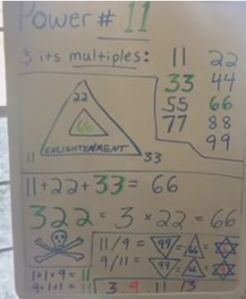 Power # 11
3 its multiples: 11 22
33 44
55 66
77 88
99
22
66
ENLIGHTENMENT
11 33
11+22+33= 66
322 = 3 × 22 = 66
11/9 = 99 = 66 =
9/11 = 99 = 66 =
1+1+9 = 11
9+1+1 = 11
3 9 11 13